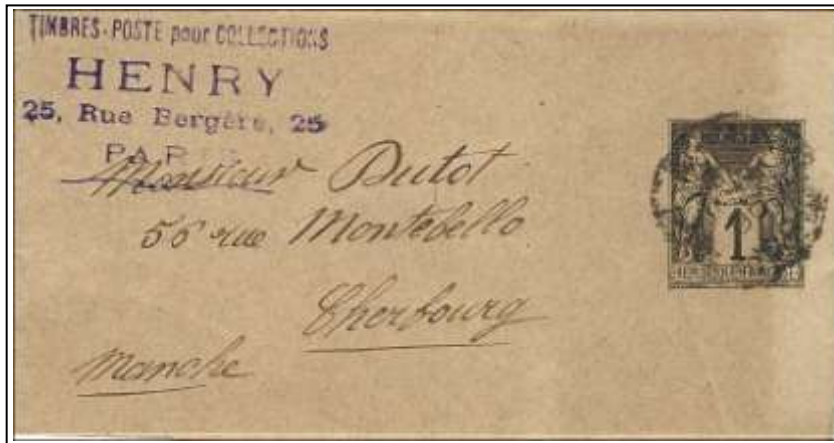 TIMBRES-POSTE pour COLLECTIONS
HENRY
25, Rue Bergère, 25
PARIS
Monsieur Dutot
56 rue Montebello
Cherbourg
Manche
1